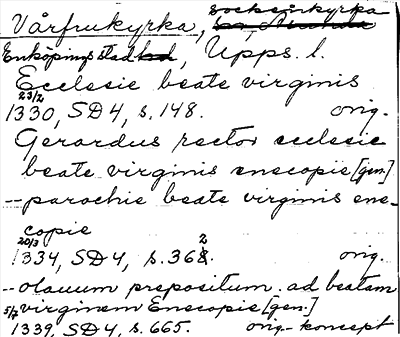 Vårfrukyrka, sockenkyrka
Enköpings stad, Upps. l.
Ecclesie beate virginis
23/2 1330, SD4, s. 148. orig.
Gerardus rector ecclesie
beate virginis enecopie [gen.]
-- parochie beate virginis ene-
copie
20/3 1334, SD4, s. 362. orig.
-- olauum prepositum ad beatam
virginem Enecopie [gen.]
5/7 1339, SD4, s. 665. orig.-koncept